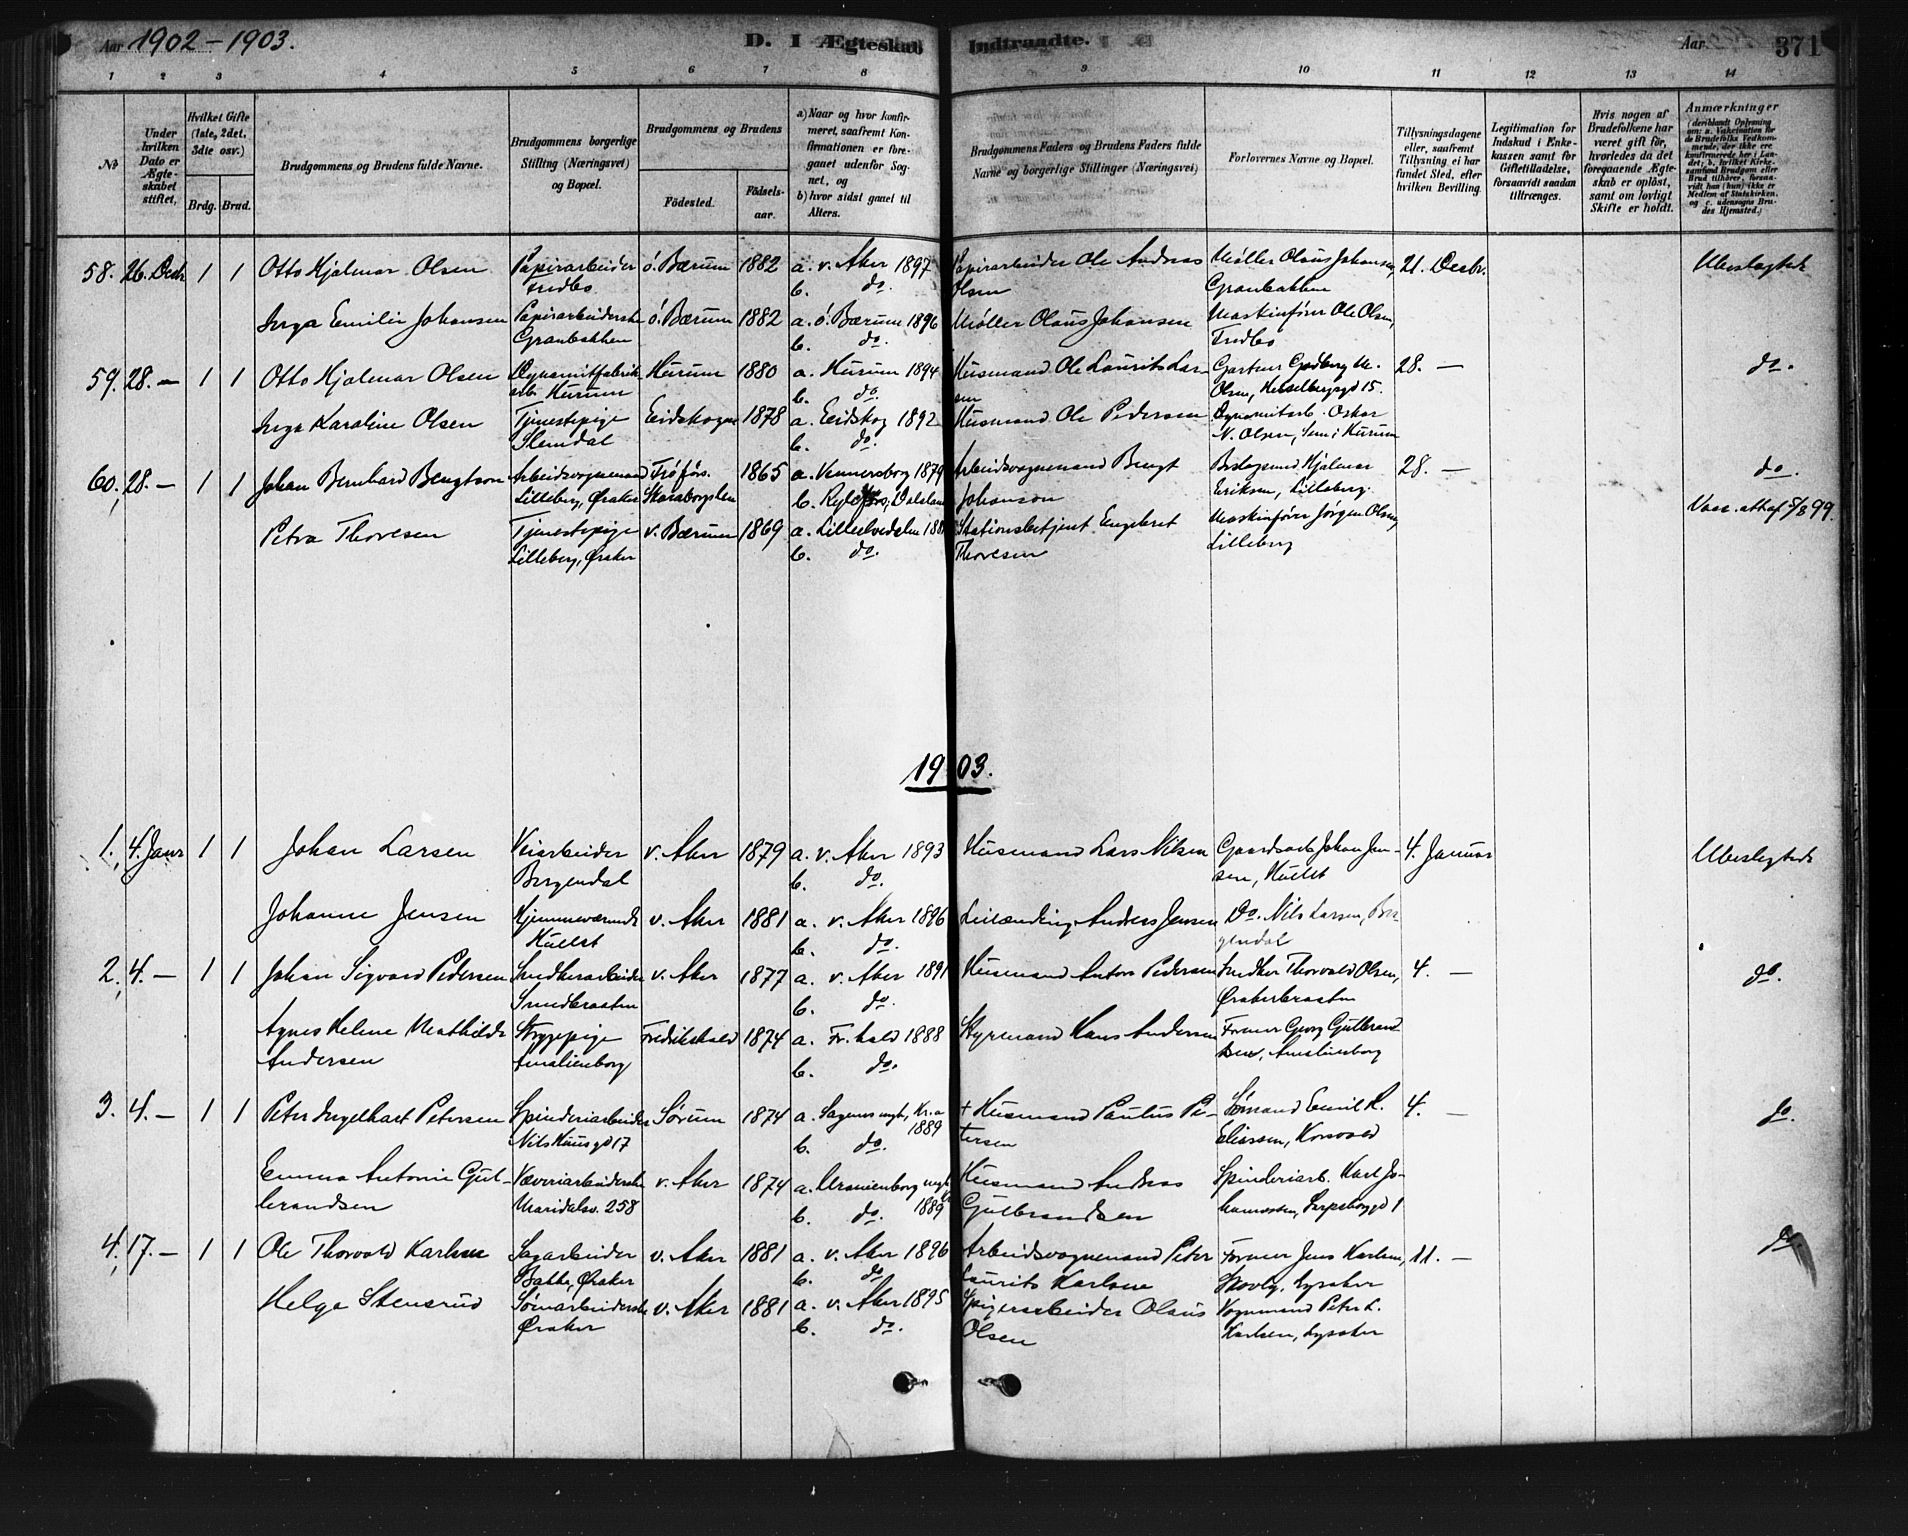 Aar 1902 - 1903. D. I Ægteskab Indtraadte. Aar 371
1 2 3 4 5 6 7 8 9 10 11 12 13 14
No
Under hvilken Dato er Ægteskabet stiftet.
Hvilket Gifte (1ste, 2det, 3die osv.)
Brdg. Brud.
Brudgommens og Brudens fulde Navne.
Brudgommens borgerlige Stilling (Næringsvei) og Bopæl.
Brudgommens og Brudens
Fødested. Fødselsaar.
a) Naar og hvor konfirmeret, saafremt Konfirmationen er foregaaet udenfor Sognet, og
b) hvor sidst gaaet til Alters.
Brudgommens Faders og Brudens Faders fulde Navne og borgerlige Stillinger (Næringsvei)
Forlovernes Navne og Bopæl.
Tillysningsdagene eller, saafremt Tillysning ei har fundet Sted, efter hvilken Bevilling.
Legitimation for Indskud i Enkekassen samt for Giftetilladelse, forsaavidt saadan tiltrænges.
Hvis nogen af Brudefolkene har været gift før, hvorledes da det foregaaende Ægteskab er opløst, samt om lovligt Skifte er holdt.
Anmærkninger
58. 26. Decbr 1 1 Otto Hjalmar Olsen Papirarbeider Fredbo ö. Bærum 1882 a. v. Aker 1897 b. do. Papirarbeider Ole Andreas Olsen Møller Olaus Johansen, Granbakken 21. Decbr. Ubeslægtede
Inga Emilie Johansen Papirarbeiderske Granbakken ö. Bærum 1882 a. ö. Bærum 1896 b. do. Møller Olaus Johansen Maskinfører Ole Olsen, Fredbo
59. 28. - 1 1 Otto Hjalmar Olsen Dynamitfabrik arb. Hurum Hurum 1880 a. Hurum 1894 b. do. Husmand Ole Laurits Larsen Gartner Godberg M. Olsen, Hesselbergsgd 15. 28. - do.
Inga Karoline Olsen Tjenestepige Slemdal Eidskogen 1878 a. Eidskog 1892 b. do. Husmand Ole Pedersen Dynamitarb. Oskar N. Olsen, Sem i Hurum
60. 28. - 1 1 Johan Bernhard Bengtson Arbeidsvognmand Lilleberg, Øraker Skaraborgslen 1865 a. Vennersborg 1879 b. Dalsland Arbeidsvognmand Bengt Johanson Hjalmar Eriksen, Lilleberg. 28. - do. Vacc. att. af 5/8 99.
Petra Thoresen Tjenestepige Lilleberg, Øraker v. Bærum 1869 a. Lilleelvedalen b. do. Stationsbetjent Engebret Thoresen Maskinfører Jörgen Olsen, Lilleberg
1903.
1. 4. Janr 1 1 Johan Larsen Veiarbeider Borgendal v. Aker 1879 a. v. Aker 1893 b. do. Husmand Lars Nilsen Gaardsarb. Johan Jensen, 4. Januar Ubeslægtede
Johanne Jensen Hjemmeværende v. Aker 1881 a. v. Aker 1896 b. do. Leilænding Andreas Jensen Do. Nils Larsen, Borgendal
2. 4. - 1 1 Johan Sigvard Pedersen Snedkerarbeider Smedbraaten v. Aker 1877 a. v. Aker 1891 b. do. Husmand Anton Pedersen Snedker Thorvald Olsen, Ørakerbraaten 4. - do.
Agnes Helene Mathilde Andersen Strygepige Amalienborg Fredrikshald 1874 a. Fr.hald 1888 b. do. Styrmand Hans Andersen Former Georg Gulbrandsen, Amalienborg
3. 4. - 1 1 Peter Ingelhart Petersen Spinderiarbeider Nils Huus gd 17 Sørum 1874 a. Sagenes mgt, Kr.a 1889 b. do. + Husmand Paulus Petersen Sømand Emil K. Eliassen, 4. - do.
Emma Antonie Gulbrandsen Væveriarbeiderske Maridalsv. 258 v. Aker 1874 a. Uranienborg mgt 1889 b. do. Husmand Andreas Gulbrandsen Spinderiarb. Karl Johannesen, Sarpsborggd 1
4. 17. - 1 1 Ole Thorvald Karlsen Sagarbeider Bakke, Øraker v. Aker 1881 a. v. Aker 1896 b. do Arbeidsvognmand Peter Laurits Karlsen Former Jens Karlsen, Lysaker 11. - do.
Helga Stensrud Sømarbeiderske Øraker v. Aker 1881 a. v. Aker 1895 b. do. Spigerarbeider Olaus Olsen Vognmand Peter L. Karlsen, Lysaker